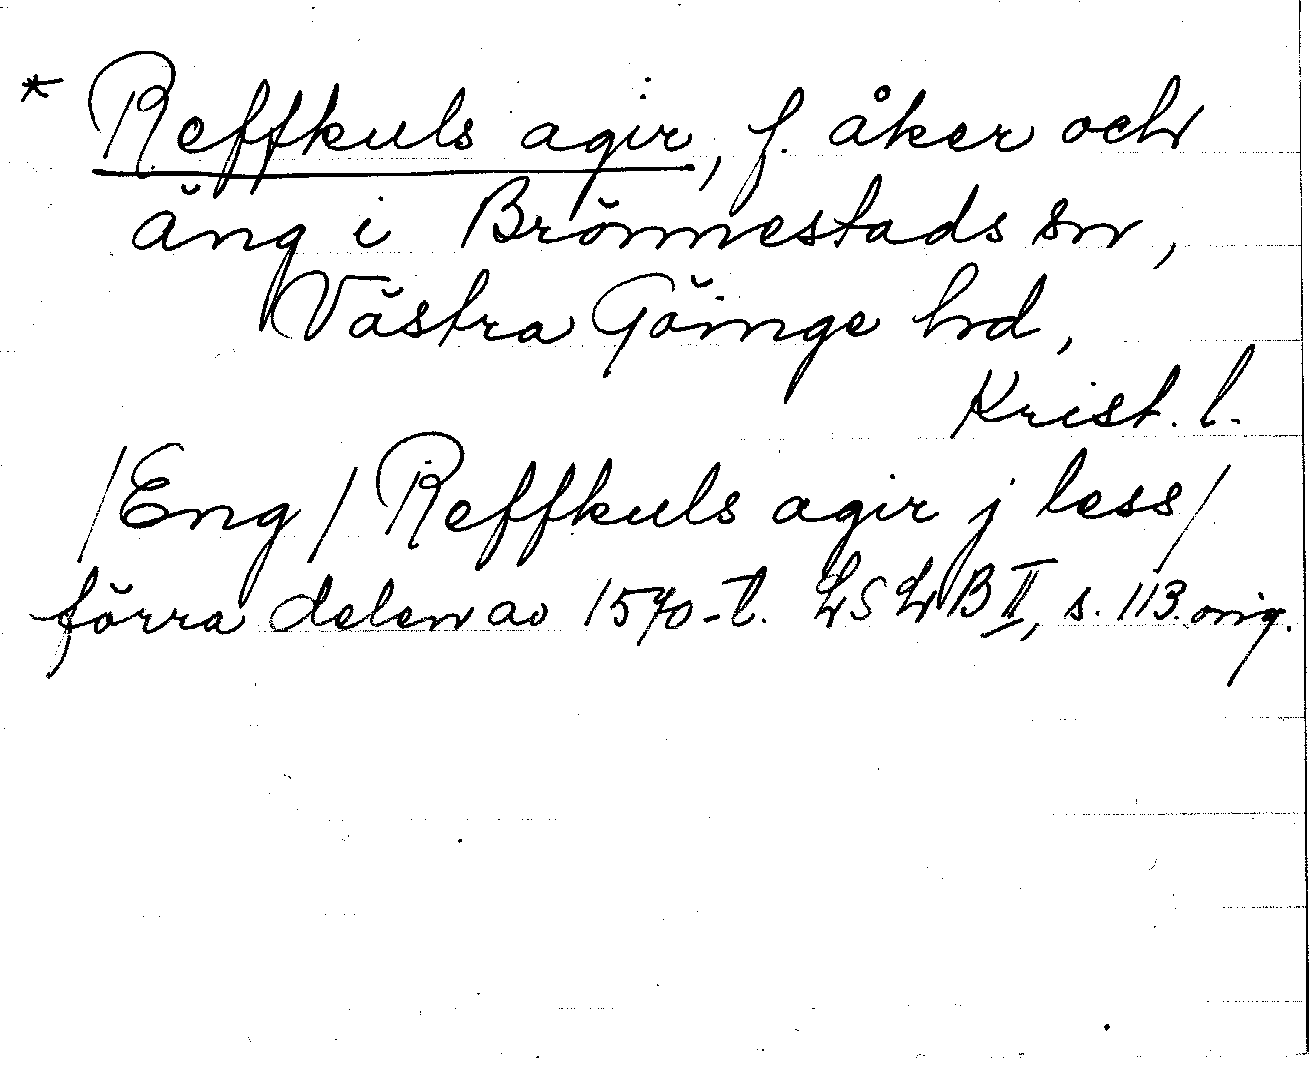 * Reffkuls agir, f. åker och
äng i Brönnestads sn,
Västra Göinge hd,
Krist. l.
/Eng/ Reffkuls agir j less/
förra delen av 1570-t. LSLB II, s. 113. orig.